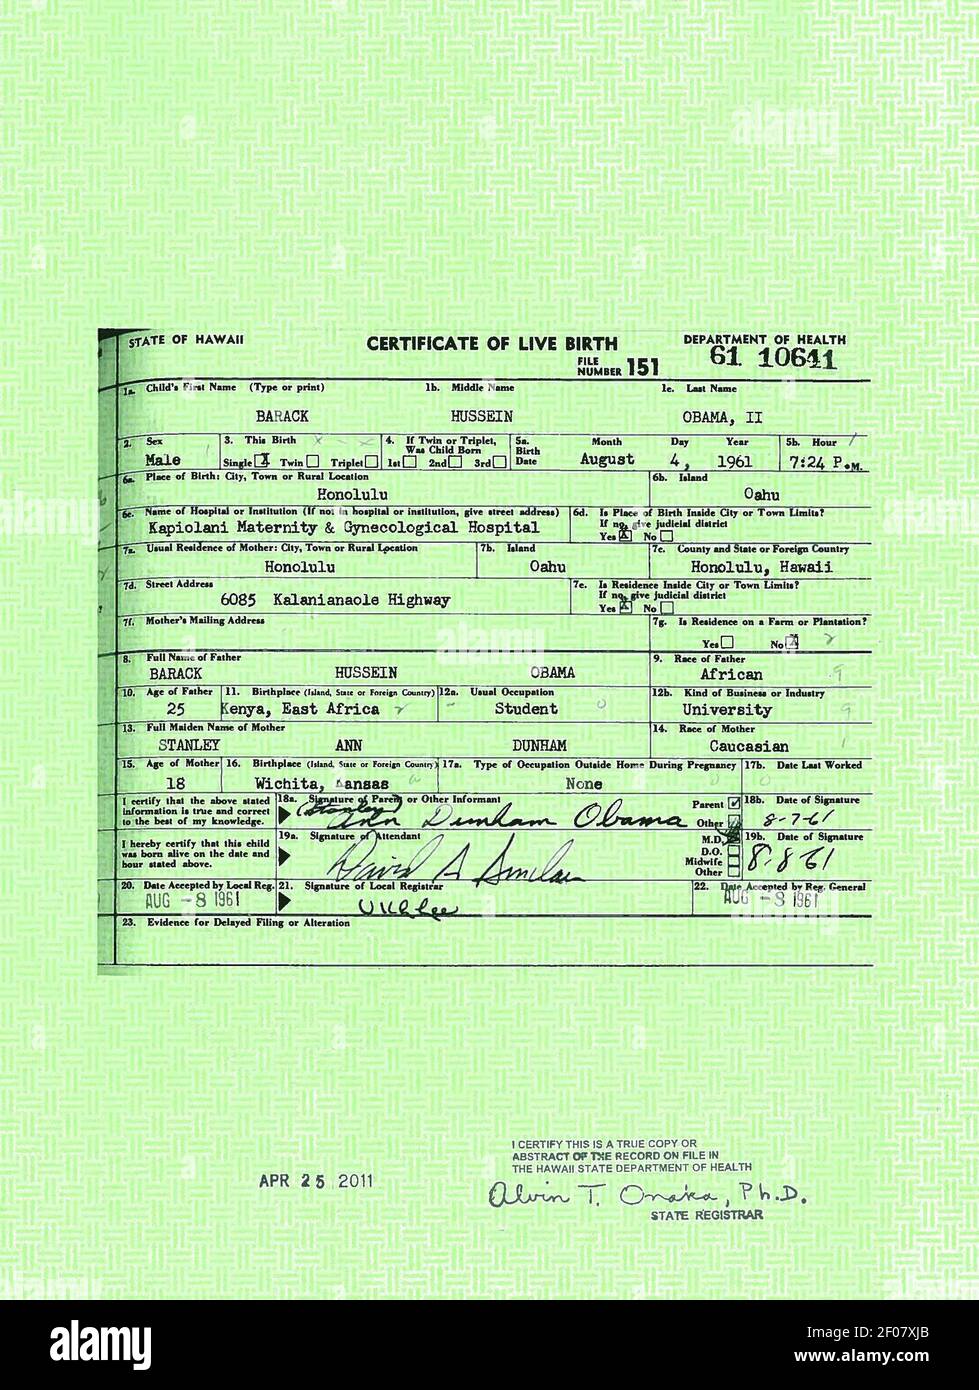 STATE OF HAWAII CERTIFICATE OF LIVE BIRTH DEPARTMENT OF HEALTH
FILE NUMBER 151 61 10641
1a. Child's First Name (Type or print) 1b. Middle Name 1c. Last Name
BARACK HUSSEIN OBAMA, II
2. Sex 3. This Birth 4. If Twin or Triplet, Was Child Born 5a. Birth Date Month Day Year 5b. Hour
Male Single X Twin Triplet 1st 2nd 3rd August 4, 1961 7:24 P.M.
6a. Place of Birth: City, Town or Rural Location 6b. Island
Honolulu Oahu
6c. Name of Hospital or Institution (If not in hospital or institution, give street address) 6d. Is Place of Birth Inside City or Town Limits?
If no, give judicial district
Kapiolani Maternity & Gynecological Hospital Yes X No
7a. Usual Residence of Mother: City, Town or Rural Location 7b. Island 7c. County and State or Foreign Country
Honolulu Oahu Honolulu, Hawaii
7d. Street Address 7e. Is Residence Inside City or Town Limits?
If no, give judicial district
6085 Kalanianaole Highway Yes X No
7f. Mother's Mailing Address 7g. Is Residence on a Farm or Plantation?
Yes No X
8. Full Name of Father 9. Race of Father
BARACK HUSSEIN OBAMA African 9
10. Age of Father 11. Birthplace (Island, State or Foreign Country) 12a. Usual Occupation 12b. Kind of Business or Industry
25 Kenya, East Africa Student University 9
13. Full Maiden Name of Mother 14. Race of Mother
STANLEY ANN DUNHAM Caucasian 1
15. Age of Mother 16. Birthplace (Island, State or Foreign Country) 17a. Type of Occupation Outside Home During Pregnancy 17b. Date Last Worked
18 Wichita, Kansas None
I certify that the above stated information is true and correct to the best of my knowledge.
18a. Signature of Parent or Other Informant Parent Other 18b. Date of Signature
(Stanley) Ann Dunham Obama 8-7-61
I hereby certify that this child was born alive on the date and hour stated above.
19a. Signature of Attendant M.D. D.O. Midwife Other 19b. Date of Signature
David A Sinclair 8-8-61
20. Date Accepted by Local Reg. 21. Signature of Local Registrar 22. Date Accepted by Reg. General
AUG -8 1961 U K L Lee AUG -8 1961
23. Evidence for Delayed Filing or Alteration
APR 25 2011
I CERTIFY THIS IS A TRUE COPY OR
ABSTRACT OF TXE RECORD ON FILE IN
THE HAWAII STATE DEPARTMENT OF HEALTH
Alvin T. Onaka, Ph.D.
STATE REGISTRAR
alamy
Image ID: 2F07XJB
www.alamy.com